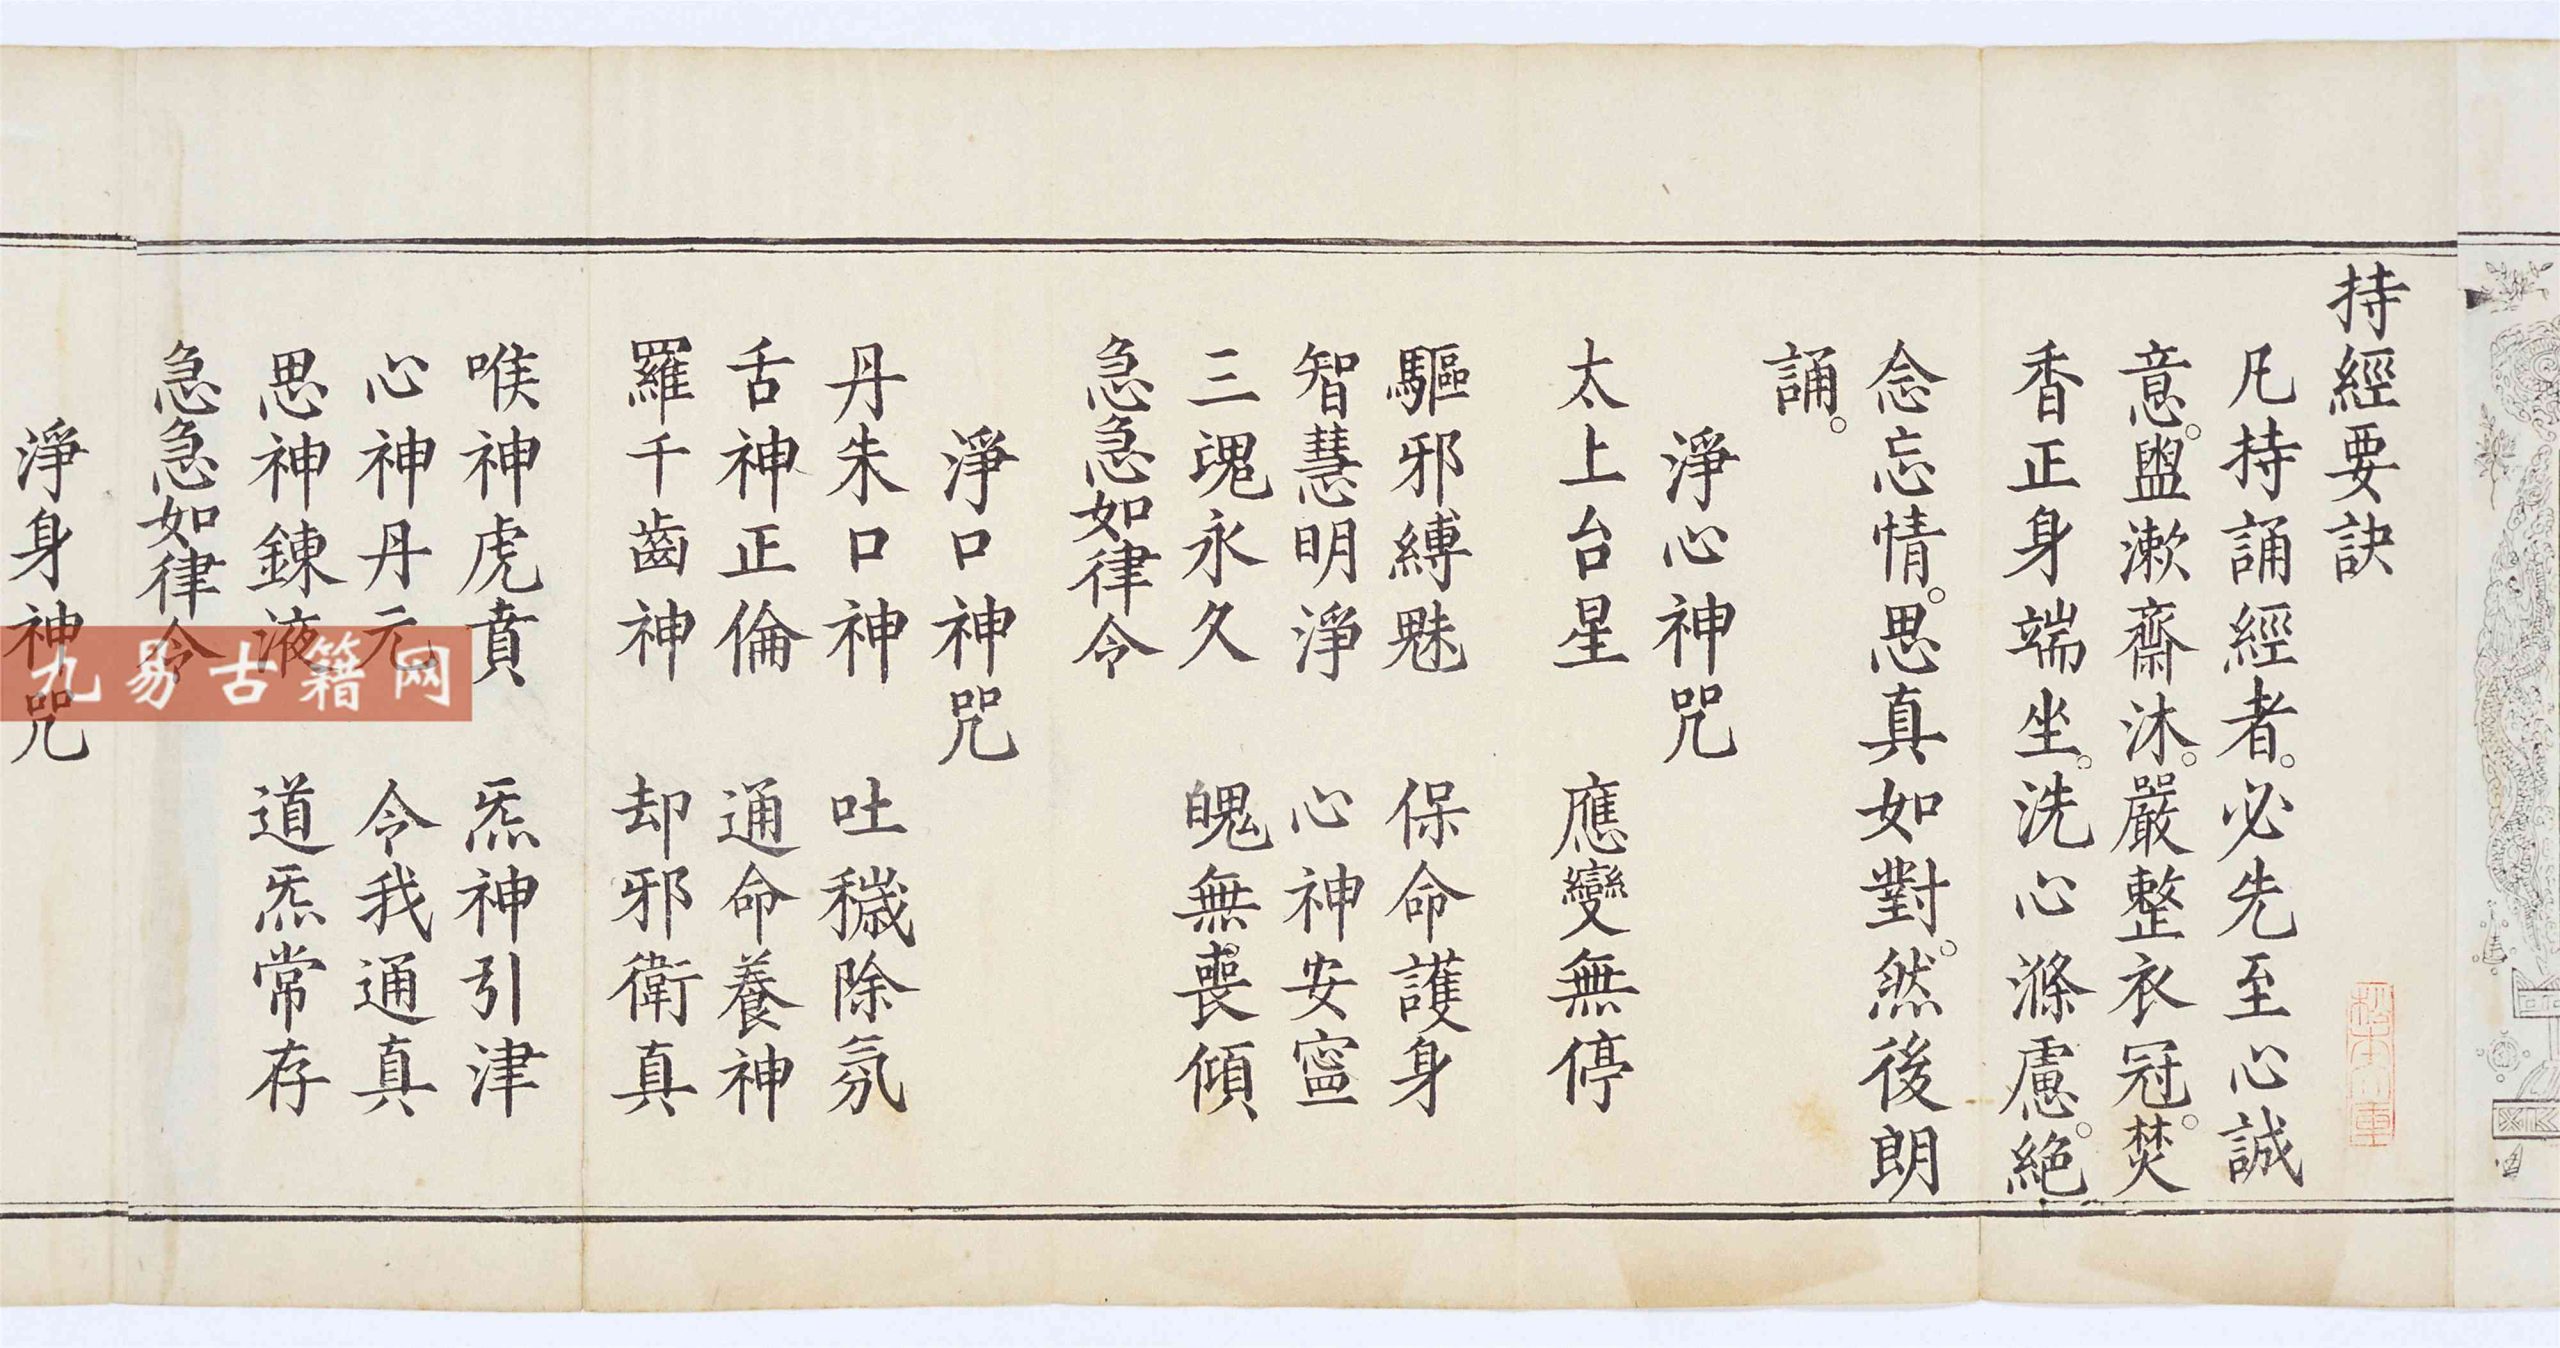 持經要訣
凡持誦經者。必先至心誠
意。盥漱齋沐。嚴整衣冠。焚
香正身端坐。洗心滌慮。絕
念忘情。思真如對。然後朗
誦。
淨心神咒
太上台星　應變無停
驅邪縛魅　保命護身
智慧明淨　心神安寍
三魂永久　魄無喪傾
急急如律令
淨口神咒
丹朱口神　吐穢除氛
舌神正倫　通命養神
羅千齒神　却邪衛真
喉神虎賁　炁神引津
心神丹元　令我通真
思神鍊液　道炁常存
急急如律令
淨身神咒
九易古籍网